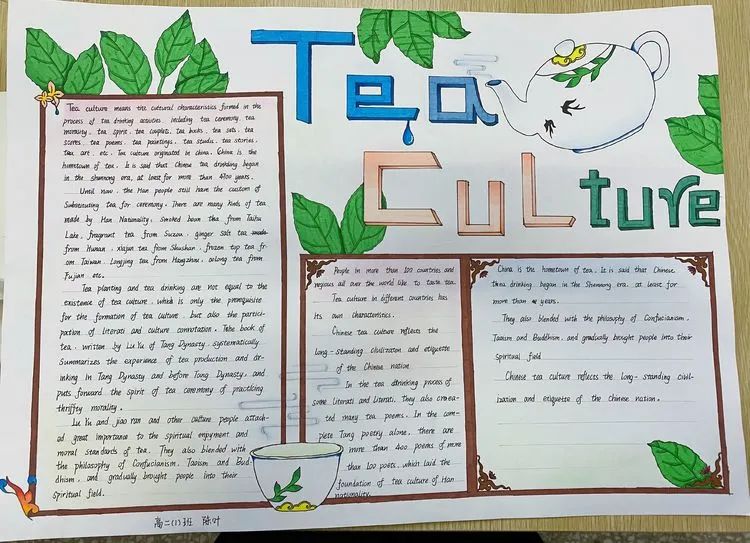 Tea
Culture
Tea culture means the cultural characteristics formed in the
process of tea drinking activities, including tea ceremony, tea
morality, tea spirit, tea couplets, tea books, tea sets, tea
scores, tea poems, tea paintings, tea studio, tea stories,
tea art, etc. Tea culture originated in china. China is the
hometown of tea. It is said that Chinese tea drinking began
in the shennong era, at least for more than 4700 years.
Until now, the Han people still have the custom of
Substituting tea for ceremony. There are many kinds of tea
made by Han Nationality, Smoked bean tea from Taihu
Lake, fragrant tea from Suzou, ginger salt tea
from Hunan, xiajun tea from Shushan, frozen top tea fr
om Taiwan, Longjing tea from Hangzhou, oolong tea from
Fujian etc.
Tea planting and tea drinking are not equal to the
existence of tea culture, which is only the prerequisite
for the formation of tea culture, but also the partici-
pation of literati and culture connotation. Take book of
tea, written by Lu Yu of Tang Dynasty, systematically
Summarizes the experience of tea production and dr-
inking in Tang Dynasty and before Tang Dynasty, and
puts forward the spirit of tea ceremony of practicing
thriffty morality.
Lu Yu and jiao ran and other culture people attach-
ed great importance to the spiritual enjoyment and
moral standards of tea. They also blended with
the philosophy of Confucianism, Taoism and Bud-
dhism, and gradually brought people into their
spiritual field.
People in more than 100 countries and
regions all over the world like to taste tea.
Tea culture in different countries has
its own characteristics.
Chinese tea culture reflects the
long-standing civilization and etiquette
of the Chinese nation.
In the tea drinking process of
some literati and literati, they also crea-
ted many tea poems. In the com-
plete Tang poetry alone, there are
more than 400 poems of more
than 100 poets, which laid the
foundation of tea culture of Han
nationality.
China is the hometown of tea. It is said that Chinese
tea drinking began in the Shennong era, at least for
more than years.
They also blended with the philosophy of Confucianism,
Taoism and Buddhism, and gradually brought people into their
Spiritual field
Chinese tea culture reflects the long-standing civil-
ization and etiquette of the Chinese nation.
高二(1)班 陈叶